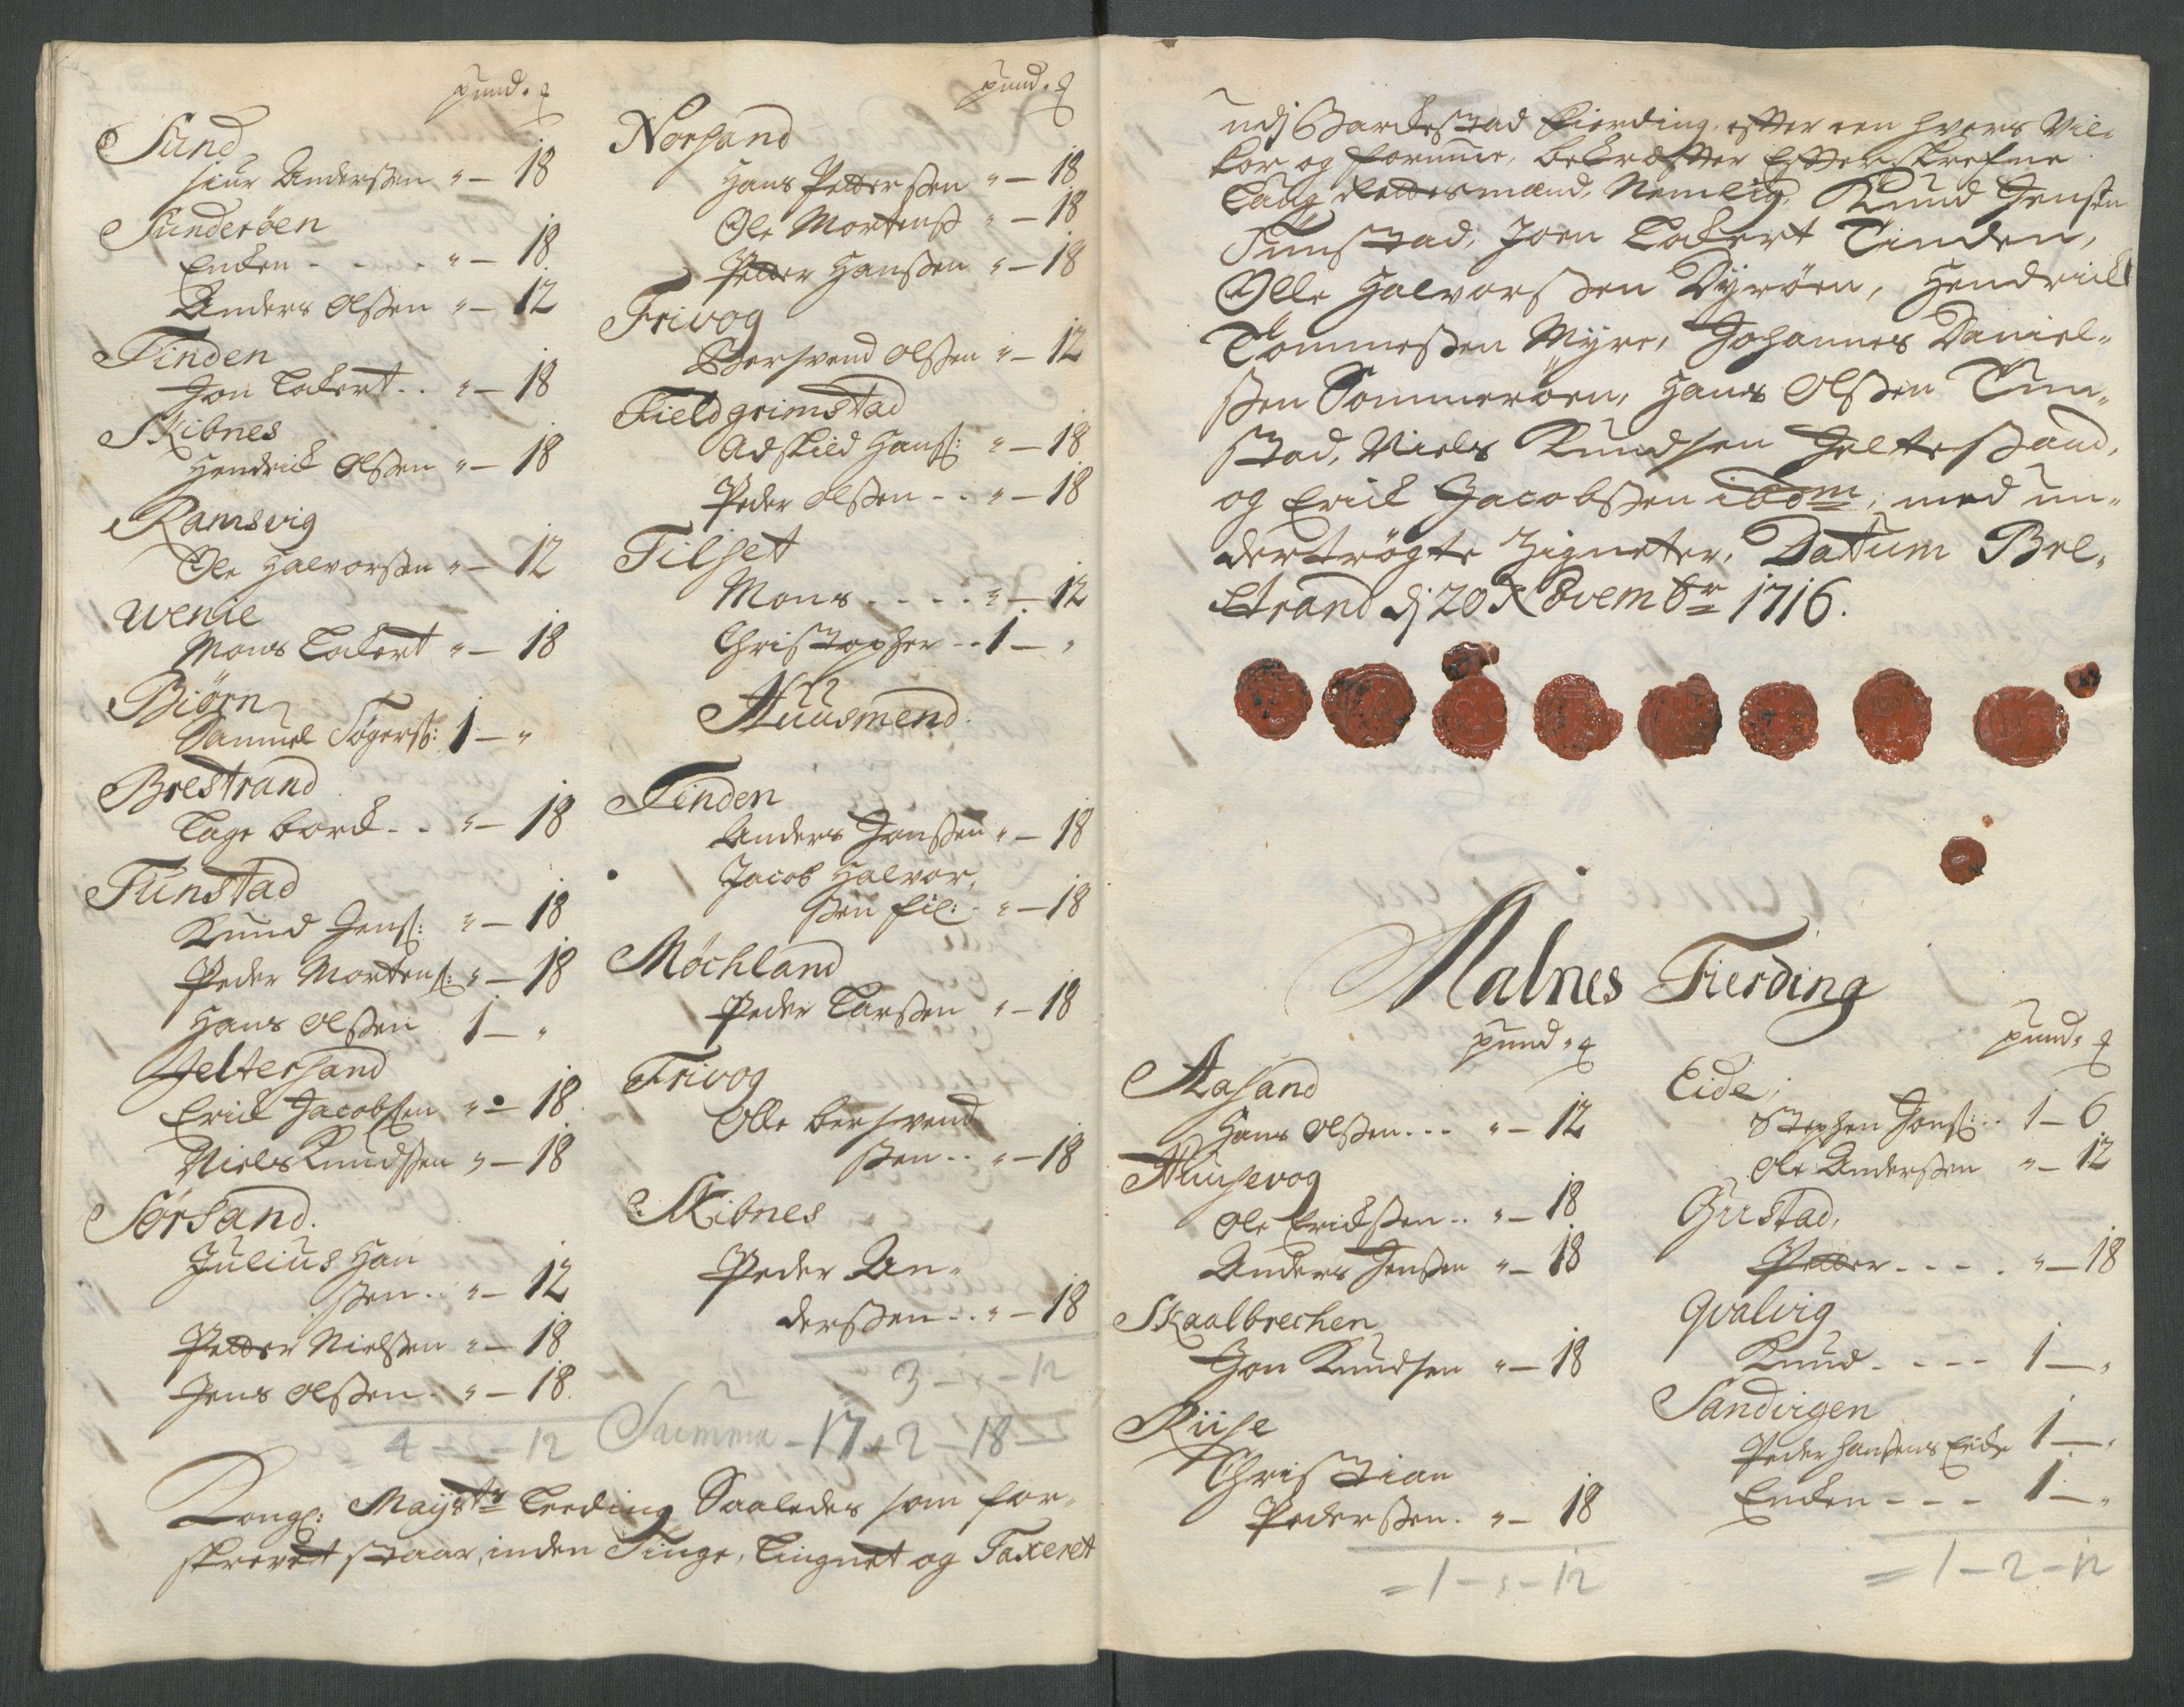 pund. q
Sund
Siur Andersen " – 18
Sunderöen
Encken - - - " – 18
Anders Olssen " – 12
Tinden
Jon Lockert . . " – 18
Skibnes
Hendrick Olssen " – 18
Ramsvig
Ole Halvorssen " – 12
Wenie
Mons Lockert " – 18
Biørn
Samuel Tøgers: 1 – "
Brestrand
Tage borch - . " – 18
Tunstad
Knud Jens: " – 18
Peder Mortens: " – 18
Hans Olssen 1 – "
Jeltersand
Erick Jacobssen " – 18
Niels Knudssen " – 18
Sørsand.
Julius Han
ssen . . " – 12
Petter Nielssen " – 18
Jens Olssen . " – 18.
4 – " – 12
pund. q
Norsand
Hans Petterssen " – 18
Ole Mortenss " – 18
Petter Hanssen " – 18
Frivog
Bersvend Olssen " – 12
Fieldgrimstad
Adskild Hans: " – 18
Peder Olssen - . " – 18
Tilset
Mons - - - . " – 12
Christopher - . 1 – "
Huusmend.
Tinden
Anders Jonssen " – 18
Jacob Halvor,
ssen fil: . " – 18
Møchland
Peder Larssen " – 18
Frivog
Olle bersvend
ssen . . " – 18
Skibnes
Peder An-
derssen . . " – 18
3 – " – 12
Summa – 17 – 2 – 18 –
Kongl: Mayts Leeding Saaledes som for-
skrevet staar, inden Tinge, Lingnet og Taxeret
udj Barkestad Fierding, effter een hvers Vil-
kor og formue, bekræffter Effterskrefne
Laug Rettesmænd, Nemlig, Knud Jensen
Tunstad, Joen Lockert Tinden,
Olle Halvorssen Dyrøen, Hendrick
Tommessen Myre, Johannes Daniel-
ssen Sommerøen, Hans Olssen Tun-
stad, Niels Knudsen Jeltessand,
og Erick Jacobssen ibdm, med un-
dertrøgte Zigneter, Datum Bre-
strand dj 20 Novembr 1716.
Malnes Fierding
pund. q
Aasand
Hans Olssen . . . " – 12
Huusevog
Ole Erickssen . . " – 18
Anders Jenssen " – 18
Skaalbrechen
Jon Knudsen " – 18
Riise
Christian
Pederssen . " – 18
= 1 – " – 12
pund. q
Eide,
Stephen Jons: . . 1 – 6
Ole Anderssen " – 12
Gustad,
Petter - - - . " – 18
Qvalvig
Knud - - - - 1 – "
Sandvigen
Peder Hanssens Enke 1 – "
Encken - - - 1 – "
= 1 – 2 – 12